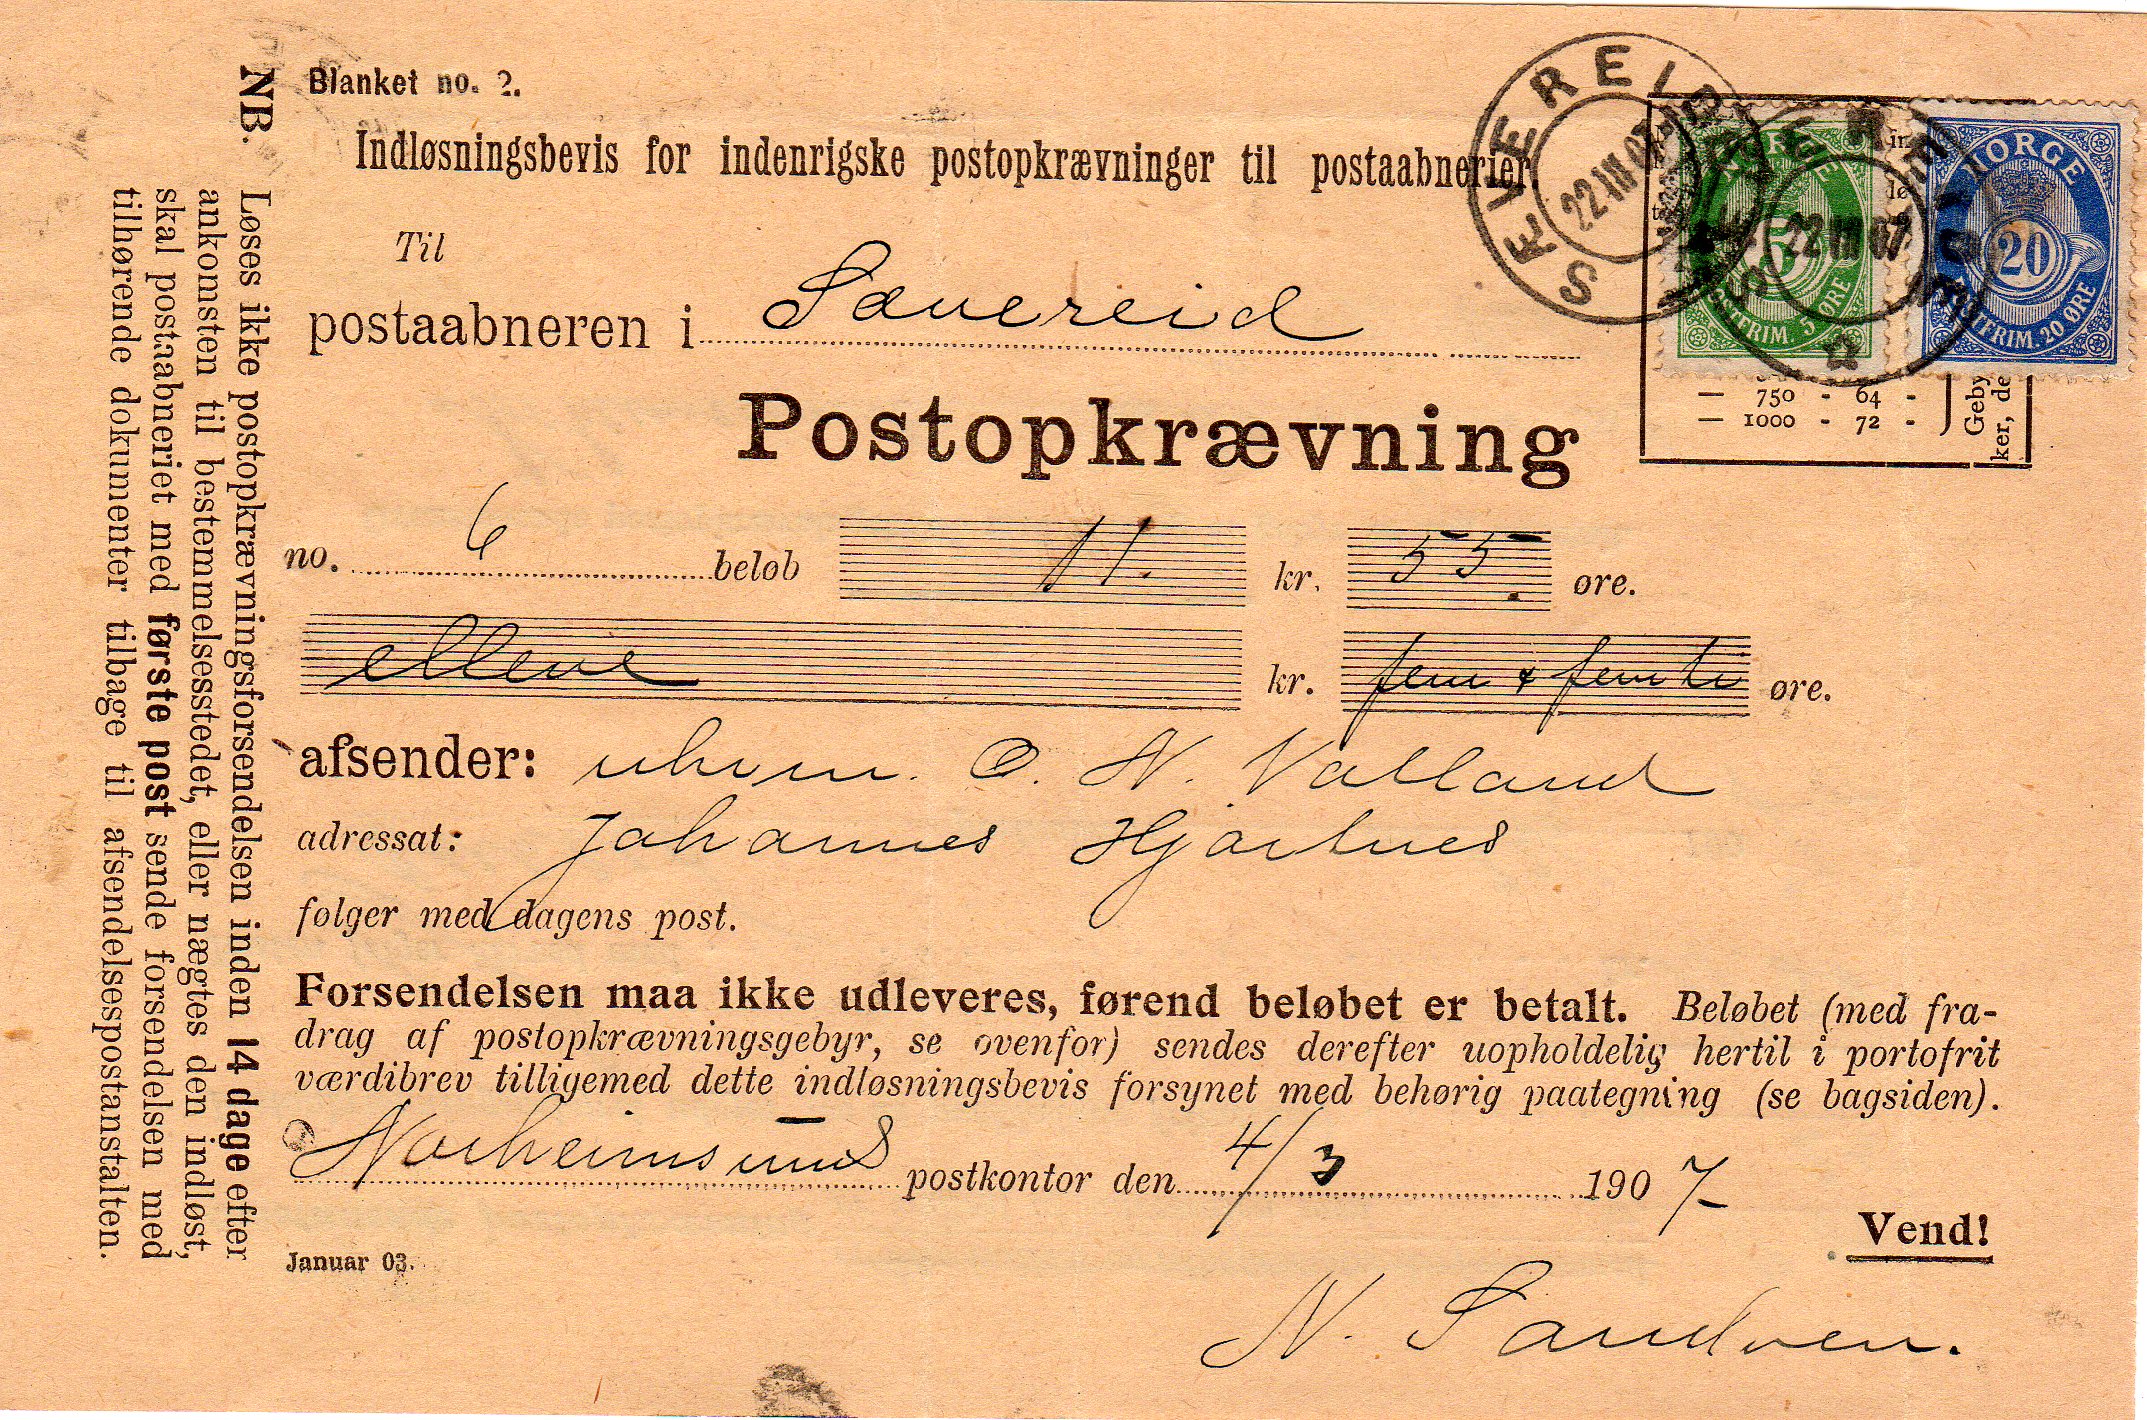 Blanket no. 2.
Indløsningsbevis for indenrigske postopkrævninger til postaabnerier.
Til
postaabneren i Sævereid
Postopkrævning
no. 6 beløb 11. kr. 55. øre.
elleve kr. fem & femti øre.
afsender: O. N. Valland
adressat: Johannes Hjartnes
følger med dagens post.
Forsendelsen maa ikke udleveres, førend beløbet er betalt. Beløbet (med fra-
drag af postopkrævningsgebyr, se ovenfor) sendes derefter uopholdelig hertil i portofrit
værdibrev tilligemed dette indløsningsbevis forsynet med behørig paategning (se bagsiden).
Norheimsund postkontor den 4/3 1907
Vend!
Januar 03.
N. Sandven.
NB. Løses ikke postopkrævningsforsendelsen inden 14 dage efter
ankomsten til bestemmelsesstedet, eller nægtes den indløst,
skal postaabneriet med første post sende forsendelsen med
tilhørende dokumenter tilbage til afsendelsespostanstalten.
SÆVEREID
22 III 07
22 III 07
NORGE
5
POSTFRIM. 5 ØRE
NORGE
20
POSTFRIM. 20 ØRE
— 750 - 64 -
— 1000 - 72 -
Geby
ker, de